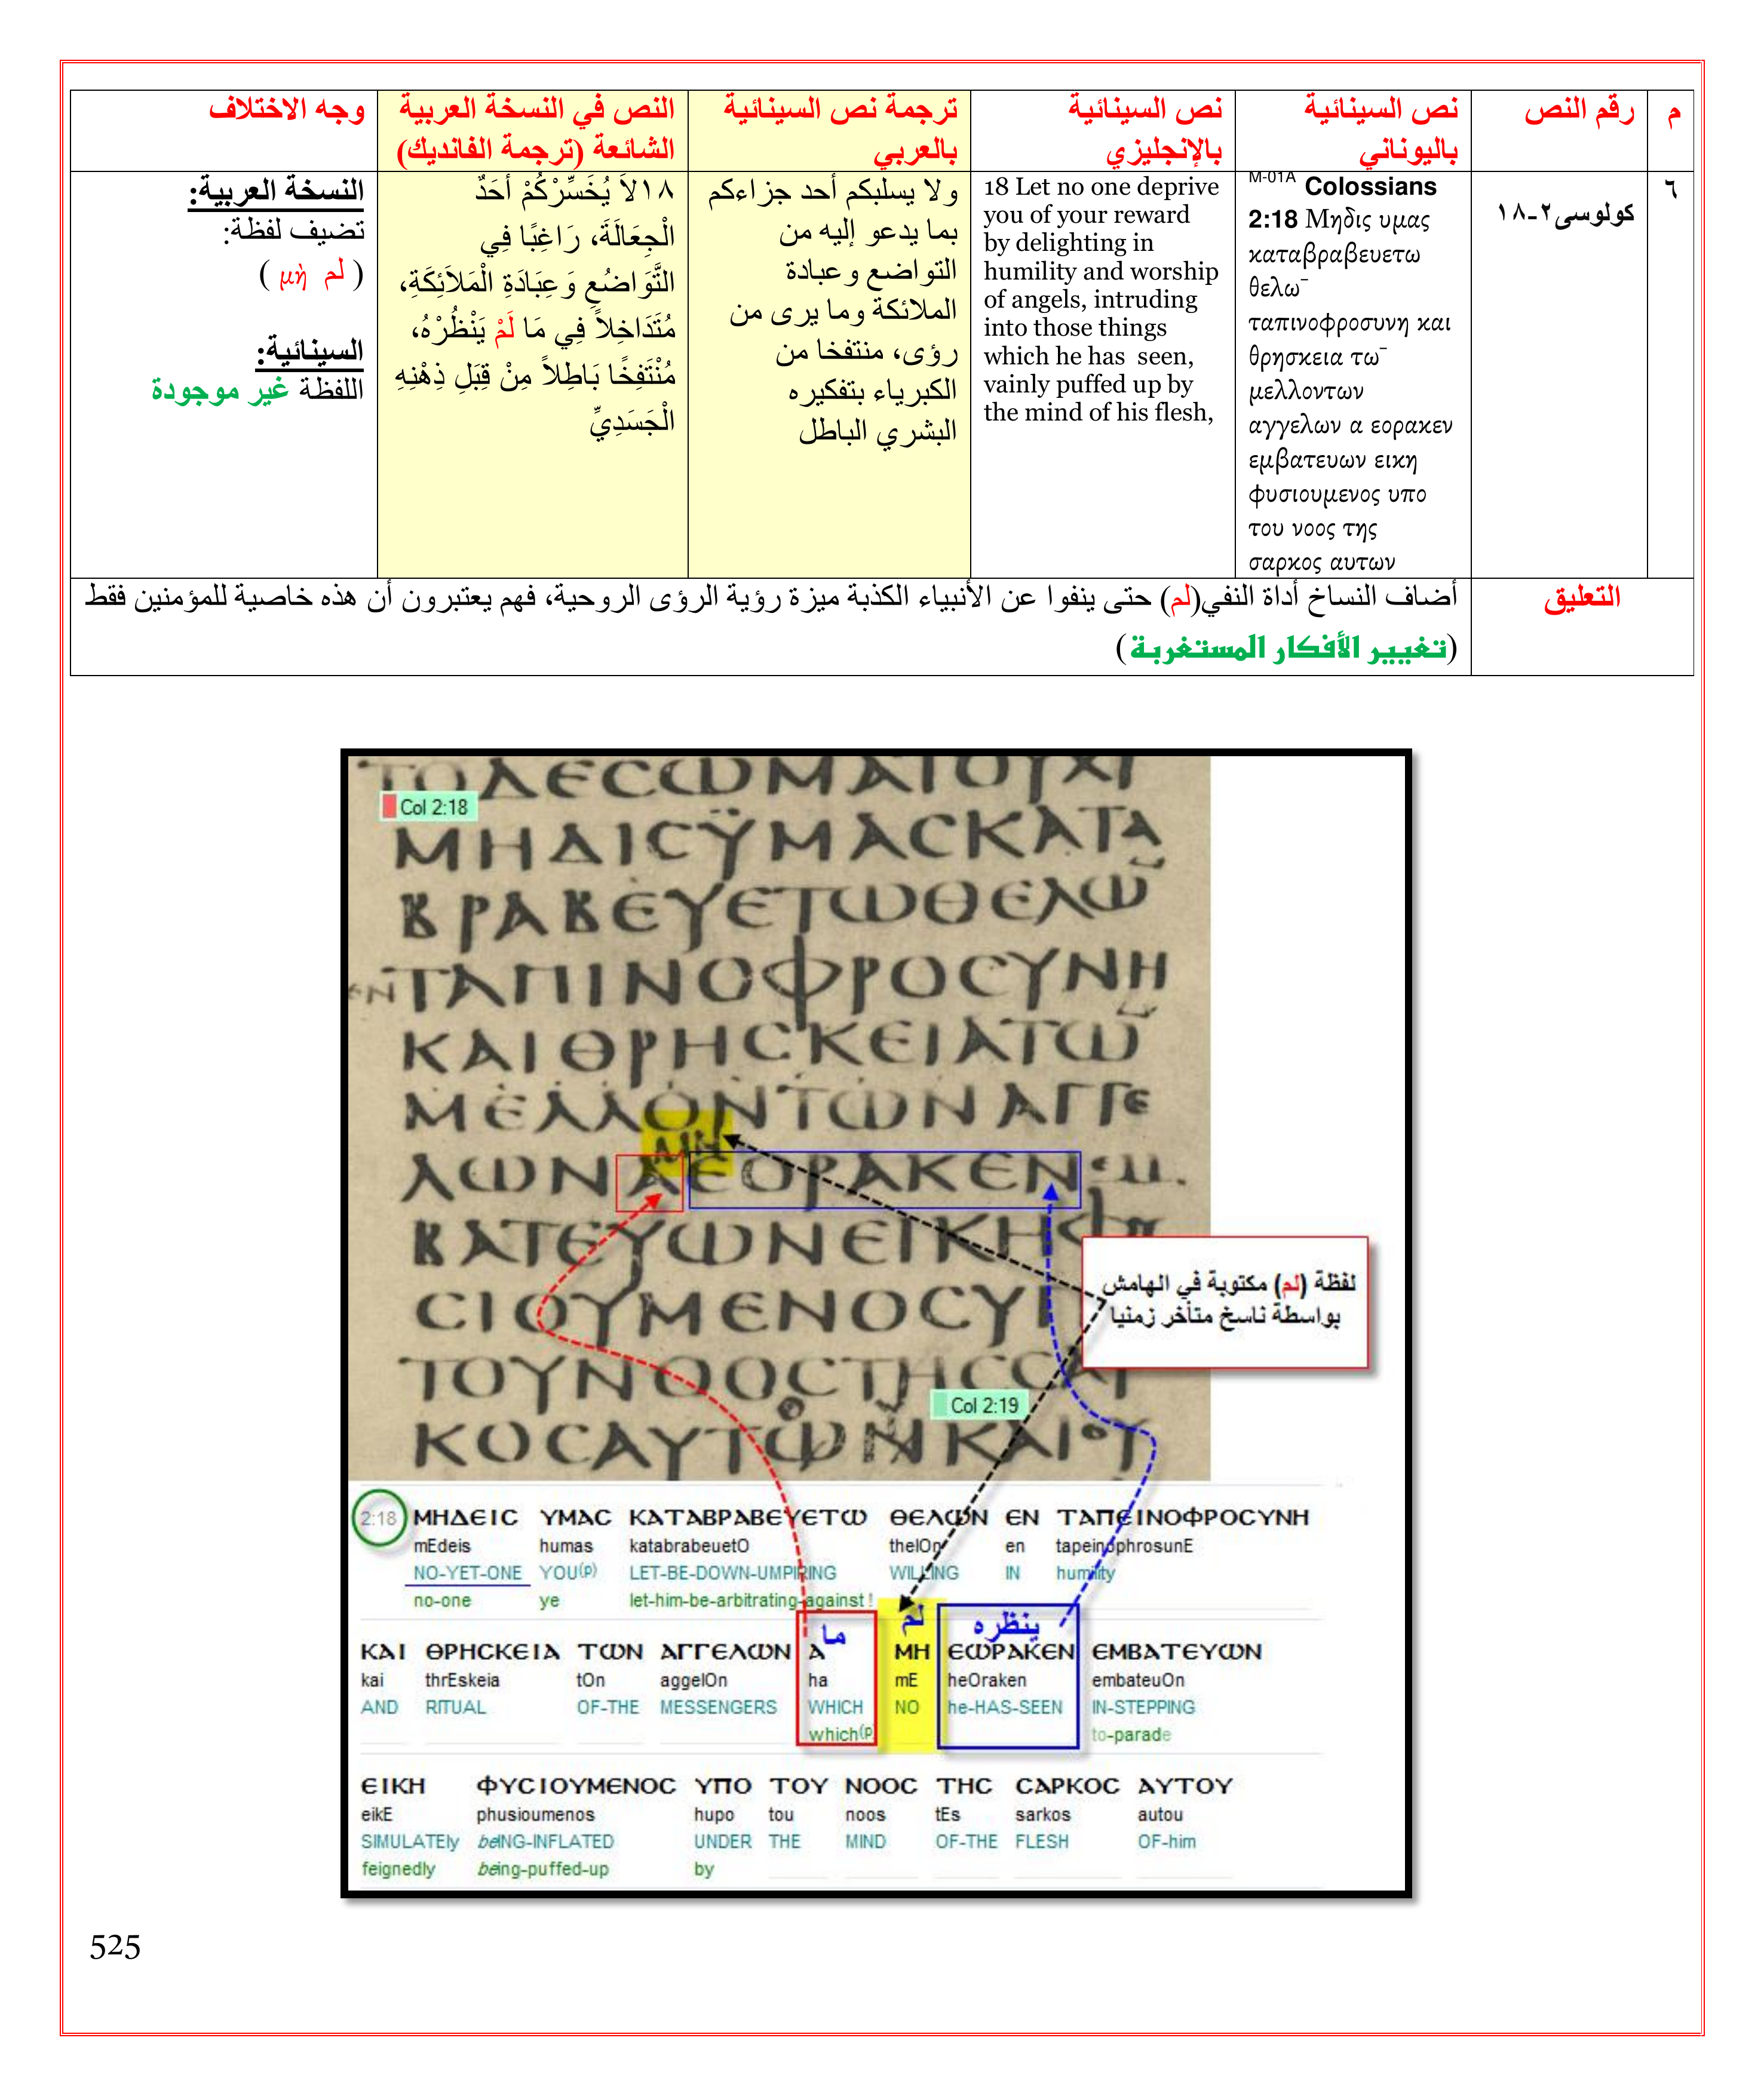 م
رقم النص
نص السينائية
باليوناني
نص السينائية
بالإنجليزي
ترجمة نص السينائية
بالعربي
النص في النسخة العربية
الشائعة (ترجمة الفانديك)
وجه الاختلاف
٦
كولوسى٢-١٨
M-01A Colossians
2:18 Μηδις υμας
καταβραβευετω
θελω¯
ταπινοφροσυνη και
θρησκεια τω¯
μελλοντων
αγγελων α εορακεν
εμβατευων εικη
φυσιουμενος υπο
του νοος της
σαρκος αυτων
18 Let no one deprive
you of your reward
by delighting in
humility and worship
of angels, intruding
into those things
which he has seen,
vainly puffed up by
the mind of his flesh,
ولا يسلبكم أحد جزاءكم
بما يدعو إليه من
التواضع وعبادة
الملائكة وما يرى من
رؤى، منتفخا من
الكبرياء بتفكيره
البشري الباطل
١٨لاَ يُخَسِّرْكُمْ أَحَدٌ
الْجِعَالَةَ، رَاغِبًا فِي
التَّوَاضُعِ وَعِبَادَةِ الْمَلاَئِكَةِ،
مُتَدَاخِلاً فِي مَا لَمْ يَنْظُرْهُ،
مُنْتَفِخًا بَاطِلاً مِنْ قِبَلِ ذِهْنِهِ
الْجَسَدِيِّ
النسخة العربية:
تضيف لفظة:
( لم μὴ )
السينائية:
اللفظة غير موجودة
التعليق
أضاف النساخ أداة النفي(لم) حتى ينفوا عن الأنبياء الكذبة ميزة رؤية الرؤى الروحية، فهم يعتبرون أن هذه خاصية للمؤمنين فقط
(تغيير الأفكار المستغربة)
ΤΟΔΕCΩΜΑΤΟΥΧΥ
Col 2:18
ΜΗΔΙCΫΜΑCΚΑΤΑ
ΒΡΑΒΕΥΕΤΩΘΕΛΩ̅
ΕΝ ΤΑΠΙΝΟΦΡΟCΥΝΗ
ΚΑΙΘΡΗCΚΕΙΑΤΩ̅
ΜΕΛΛΟΝΤΩΝΑΓΓΕ
ΜΗ
ΛΩΝΑΕΟΡΑΚΕΝΕΜ
ΒΑΤΕΥΩΝΕΙΚΗΦΥ
CΙΟΥΜΕΝΟCΥΠ
ΤΟΥΝΟΟCΤΗCCΑΡ
Col 2:19
ΚΟCΑΥΤΩΝΚΑΙΟΥ
لفظة (لم) مكتوبة في الهامش
بواسطة ناسخ متأخر زمنيا
2:18 ΜΗΔΕΙC ΥΜΑC ΚΑΤΑΒΡΑΒΕΥΕΤΩ ΘΕΛΩΝ ΕΝ ΤΑΠΕΙΝΟΦΡΟCΥΝΗ
mEdeis humas katabrabeuetO thelOn en tapeinophrosunE
NO-YET-ONE YOU(p) LET-BE-DOWN-UMPIRING WILLING IN humility
no-one ye let-him-be-arbitrating-against !
ما لم ينظره
ΚΑΙ ΘΡΗCΚΕΙΑ ΤΩΝ ΑΓΓΕΛΩΝ Α ΜΗ ΕΩΡΑΚΕΝ ΕΜΒΑΤΕΥΩΝ
kai thrEskeia tOn aggelOn ha mE heOraken embateuOn
AND RITUAL OF-THE MESSENGERS WHICH NO he-HAS-SEEN IN-STEPPING
which(p to-parade
ΕΙΚΗ ΦΥCΙΟΥΜΕΝΟC ΥΠΟ ΤΟΥ ΝΟΟC ΤΗC CΑΡΚΟC ΑΥΤΟΥ
eikE phusioumenos hupo tou noos tEs sarkos autou
SIMULATEly beING-INFLATED UNDER THE MIND OF-THE FLESH OF-him
feignedly being-puffed-up by
525